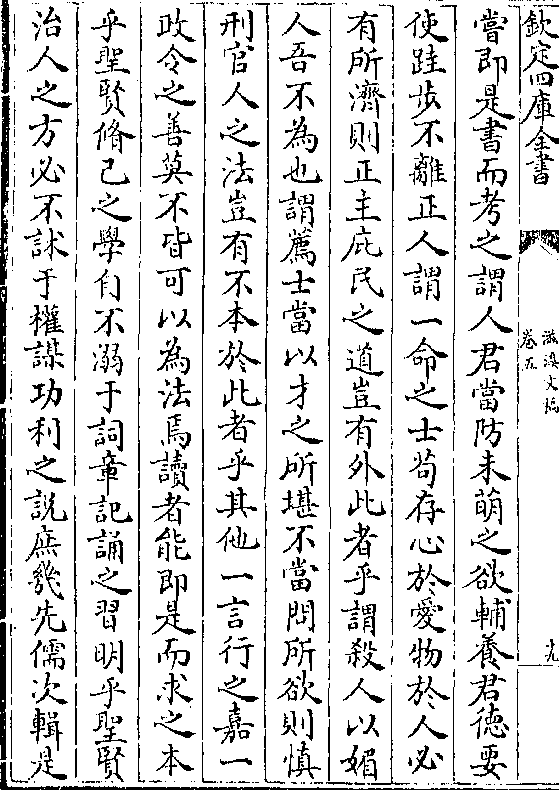 欽定四庫全書
滋溪文稿
卷五
十九
嘗即是書而考之謂人君當防未萌之欲輔養君徳要
使跬歩不離正人謂一命之士苟存心於愛物於人必
有所濟則正主庇民之道豈有外此者乎謂殺人以媚
人吾不為也謂薦士當以才之所堪不當問所欲則慎
刑官人之法豈有不本於此者乎其他一言行之嘉一
政令之善莫不皆可以為法焉讀者能即是而求之本
乎聖賢脩己之學自不溺于詞章記誦之習明乎聖賢
治人之方必不訹于權謀功利之説庶幾先儒次輯是